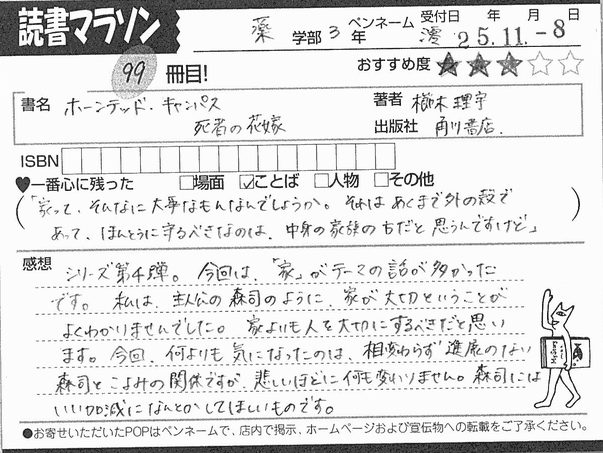 読書マラソン
薬 学部 3 年 ペンネーム 澪 受付日 年 月 日
25.11.-8
99 冊目!
おすすめ度 ★★★☆☆
書名 ホーンテッド・キャンパス
死者の花嫁
著者 櫛木理宇
出版社 角川書店.
ISBN
♥一番心に残った □場面 ☑ことば □人物 □その他
「家って、そんなに大事なもんなんでしょうか。それはあくまで外の殻で
あって、ほんとうに守るべきなのは、中身の家族のほうだと思うんですけど」
感想
シリーズ第4弾。今回は、「家」がテーマの話が多かった
です。私は、主人公の森司のように、家が大切ということが
よくわかりませんでした。家よりも人を大切にするべきだと思い
ます。今回、何よりも気になったのは、相変わらず進展のない
森司とこよみの関係ですが、悲しいほどに何も変わりません。森司には
いい加減になんとかしてほしいものです。
●お寄せいただいたPOPはペンネームで、店内で掲示、ホームページおよび宣伝物への転載をご了承ください。